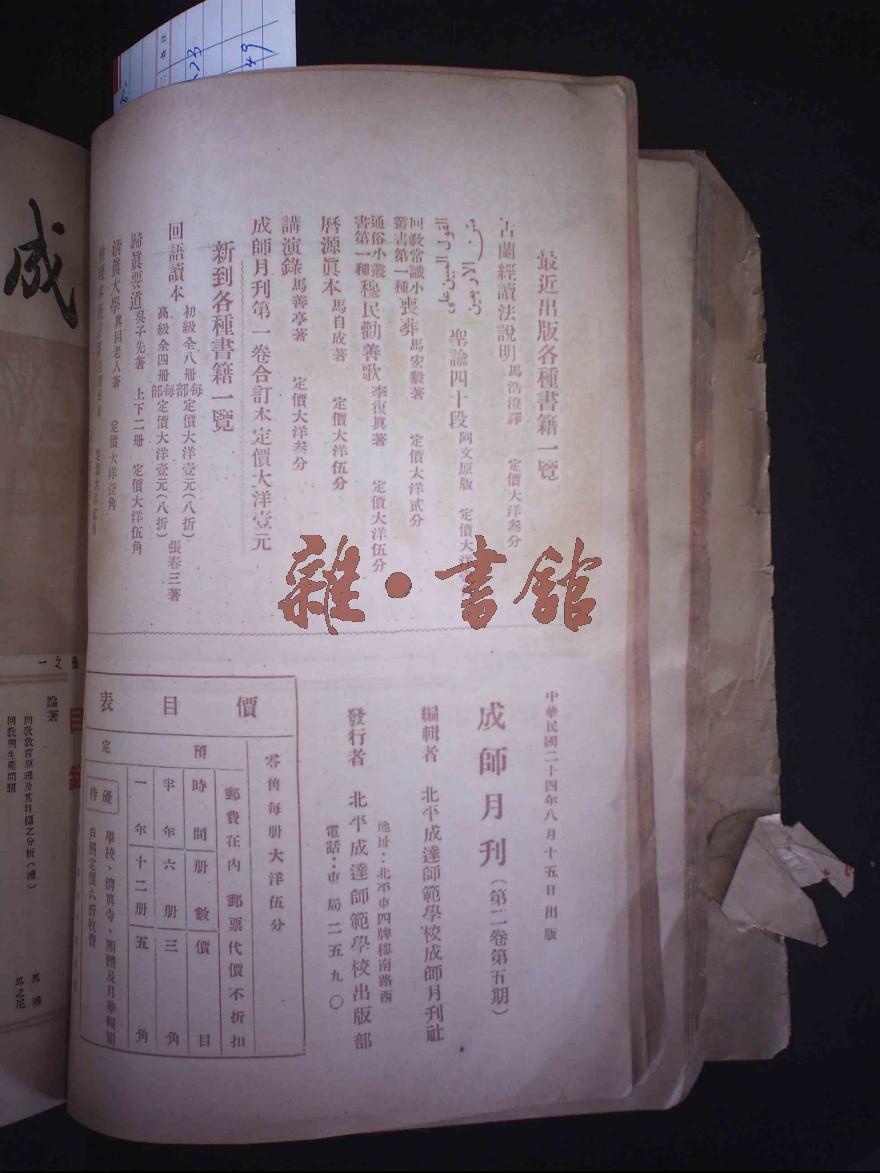 最近出版各種書籍一覽
古蘭經讀法說明 馬浩澄譯 定價大洋叁分
聖諭四十段 阿文原版 定價大洋
回教常識小叢書第一種 喪葬 馬宏毅著 定價大洋貳分
通俗小叢書第一種 穆民勸善歌 李復真著 定價大洋伍分
曆源眞本 馬自成著 定價大洋伍分
講演錄 馬善亭著 定價大洋叁分
成師月刊第一卷合訂本 定價大洋壹元
新到各種書籍一覽
回語讀本 初級全八冊每部定價大洋壹元(八折)
高級全四冊每部定價大洋壹元(八折) 張春三著
歸眞要道 吳子先著 上下二冊 定價大洋伍角
清眞大學 眞回老人著 定價大洋壹角
中華民國二十四年八月十五日出版
成師月刊(第二卷第五期)
編輯者 北平成達師範學校成師月刊社
地址:北平東四牌樓南路西
發行者 北平成達師範學校出版部
電話:東局二五九〇
價目表
零售每册大洋伍分
預定
郵費在內 郵票代價不折扣
時間 册數 價目
半年 六册 三角
一年 十二册 五角
優待
學校、清眞寺、團體及月華報閱
戶照定價六折收費
雜·書館
成
之一
目錄
論著
回教教育原理及其目標之分析(續)
回教與生產問題
49